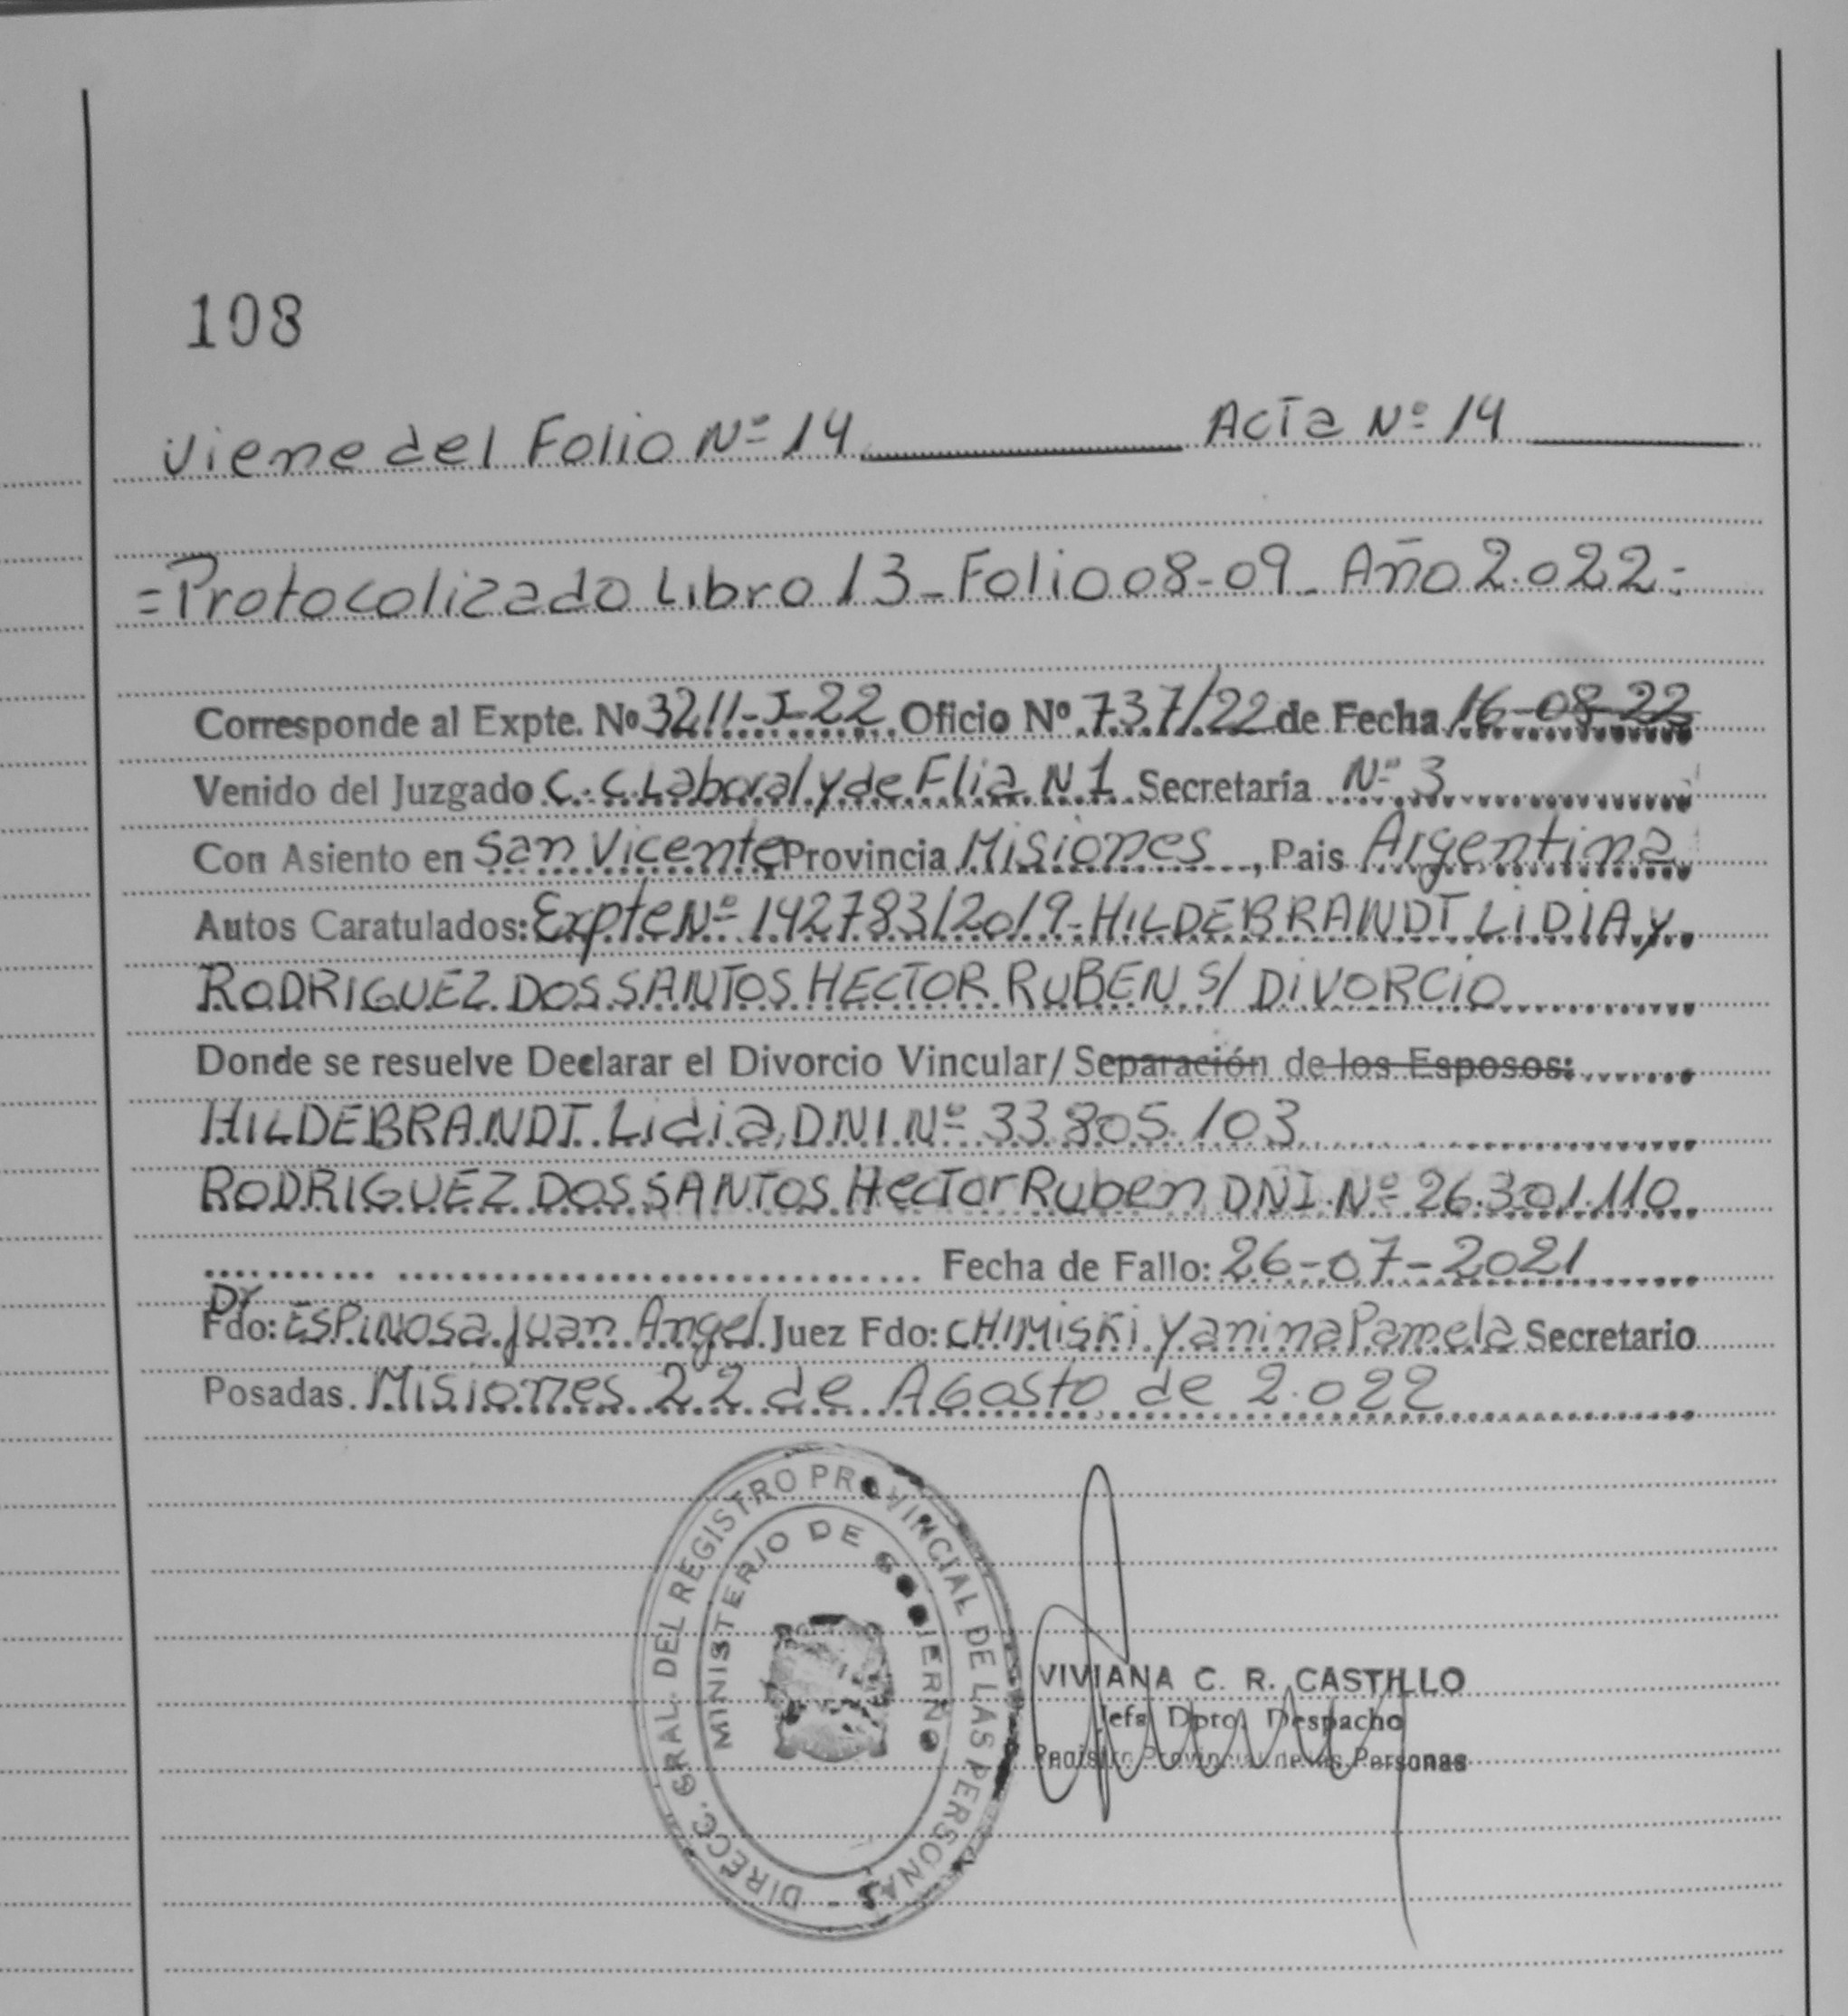 108
Viene del Folio Nº 14 Acta Nº 14
=Protocolizado Libro 13_Folio 08-09_Año 2.022=
Corresponde al Expte. Nº 3211-J-22 Oficio Nº 737/22 de Fecha 16-08-22
Venido del Juzgado C.C. Laboral y de Flia N 1 Secretaría Nº 3
Con Asiento en San Vicente Provincia Misiones, Pais Argentina
Autos Caratulados: Expte Nº 142783/2019-HILDEBRANDT LIDIA y
RODRIGUEZ DOS SANTOS HECTOR RUBEN S/ DIVORCIO
Donde se resuelve Declarar el Divorcio Vincular/ Separación de los Esposos:
HILDEBRANDT Lidia DNI Nº 33.805.103
RODRIGUEZ DOS SANTOS Hector Ruben DNI Nº 26.301.110
Fecha de Fallo: 26-07-2021
Dr
Fdo: ESPINOSA Juan Angel Juez Fdo: CHIMISKI Yanina Pamela Secretario
Posadas Misiones 22 de Agosto de 2.022
DIRECC. GRAL. DEL REGISTRO PROVINCIAL DE LAS PERSONAS -
MINISTERIO DE GOBIERNO
VIVIANA C. R. CASTILLO
Jefa Dpto. Despacho
Registro Provincial de las Personas